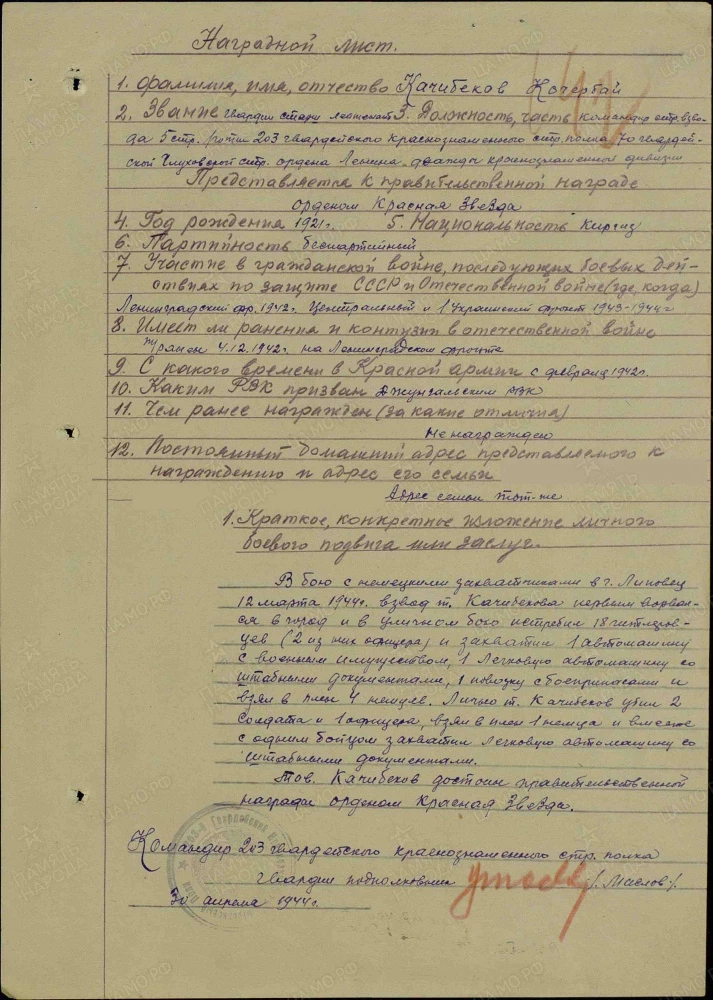 Наградной лист.
1. Фамилия, имя, отчество Качибеков Кочербай
2. Звание гвардии старш. лейтенант 3. Должность, часть командир стр. взво-
да 5 стр. роты 203 гвардейского краснознаменного стр. полка 70 гвардей-
ской Глуховской стр. ордена Ленина дважды краснознаменной дивизии
Представляется к правительственной награде
орденом Красная Звезда
4. Год рождения 1921 г. 5. Национальность Киргиз
6. Партийность беспартийный
7. Участие в гражданской войне, последующих боевых дей-
ствиях по защите СССР и Отечественной войне (где, когда)
Ленинградский фр. 1942г. Центральный и 1 Украинский фронт 1943-1944 г
8. Имеет ли ранения и контузии в отечественной войне
т/ранен 4.12.1942г. на Ленинградском фронте
9. С какого времени в Красной армии с февраля 1942г.
10. Каким РВК призван Джунгальским РВК
11. Чем ранее награжден (за какие отличия)
Не награжден
12. Постоянный домашний адрес представляемого к
награждению и адрес его семьи
Адрес семьи тот-же
1. Краткое, конкретное изложение личного
боевого подвига или заслуг.
В бою с немецкими захватчиками в г. Липовец
12 марта 1944г. взвод т. Качибекова первым ворвал-
ся в город и в уличном бою истребил 18 гитлеров-
цев (2 из них офицера) и захватил 1 автомашину
с военным имуществом, 1 Легковую автомашину со
штабными документами, 1 повозку с боеприпасами и
взял в плен 4 немцев. Лично т. Качибеков убил 2
солдата и 1 офицера, взял в плен 1 немца и вместе
с одним бойцом захватил Легковую автомашину со
штабными документами.
Тов. Качибеков достоин правительственной
награды орденом Красная Звезда.
Командир 203 гвардейского краснознаменного стр. полка
гвардии подполковник /Маслов/.
30 апреля 1944г.